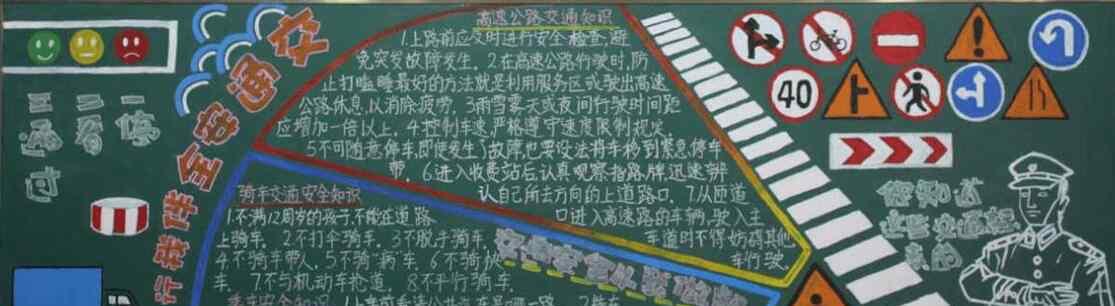 高速公路交通知识
1.上路前应及时进行安全检查,避
免突发故障发生。2.在高速公路行驶时,防
止打瞌睡最好的方法就是利用服务区或驶出高速
公路休息,以消除疲劳。3.雨雪雾天或夜间行驶时间距
应增加一倍以上。4.控制车速,严格遵守速度限制规定。
5.不可随意停车,即使发生了故障,也要设法将车移到紧急停车
带。6.进入收费站后认真观察指路牌,迅速辨
认自己所去方向的上道路口。7.从匝道
口进入高速路的车辆,驶入主
车道时不得妨碍其他
车行驶。
骑车交通安全知识
1.不满12周岁的孩子,不能在道路
上骑车。2.不打伞骑车。3.不脱手骑车。
4.不骑车带人。5.不骑"病"车。6.不骑快
车。7.不与机动车抢道。8.不平行骑车。
乘车安全知识
交通安全
伴我行
一停
二看
三通过
40
你知道
这些交通标
志吗